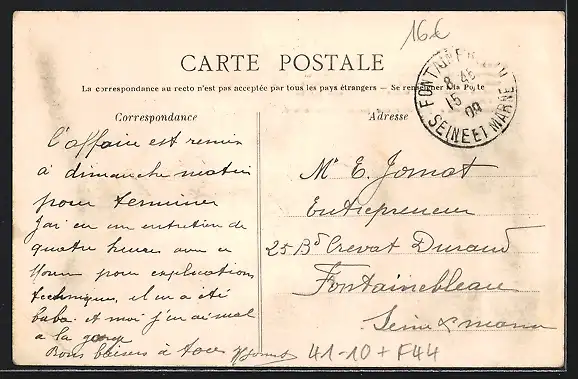 16€
CARTE POSTALE
La correspondance au recto n'est pas acceptée par tous les pays étrangers — Se renseigner à la Poste
FONTAINEBLEAU
8 45
15
09
SEINE ET MARNE
Correspondance
Adresse
L'affaire est remis
à dimanche matin
pour terminer
J'ai eu un entretien de
quatre heures avec ce
pour explications
techniques, il en a été
baba. et moi j'en ai mal
a la gorge
Bons baisers à tous
Mr E. Jomat
Entrepreneur
25 Bd Crevat Durand
Fontainebleau
Seine & marne
41-10 + F44